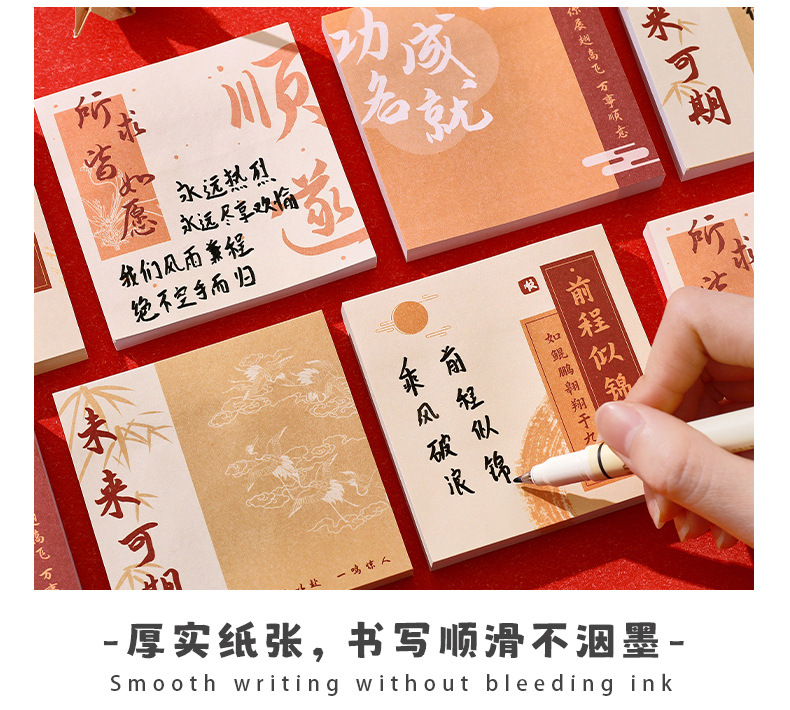 所求皆如愿
顺遂
永远热烈
永远尽享欢愉
我们风雨兼程
绝不空手而归
功成名就
展翅高飞 万事顺意
来可期
所求
皆
前程似锦
如鲲鹏翱翔于九
前程似锦
乘风破浪
未来可期
一鸣惊人
高飞 万事
-厚实纸张，书写顺滑不洇墨-
Smooth writing without bleeding ink